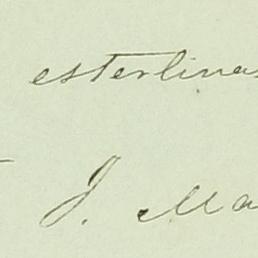 esterlinas
J. Ma